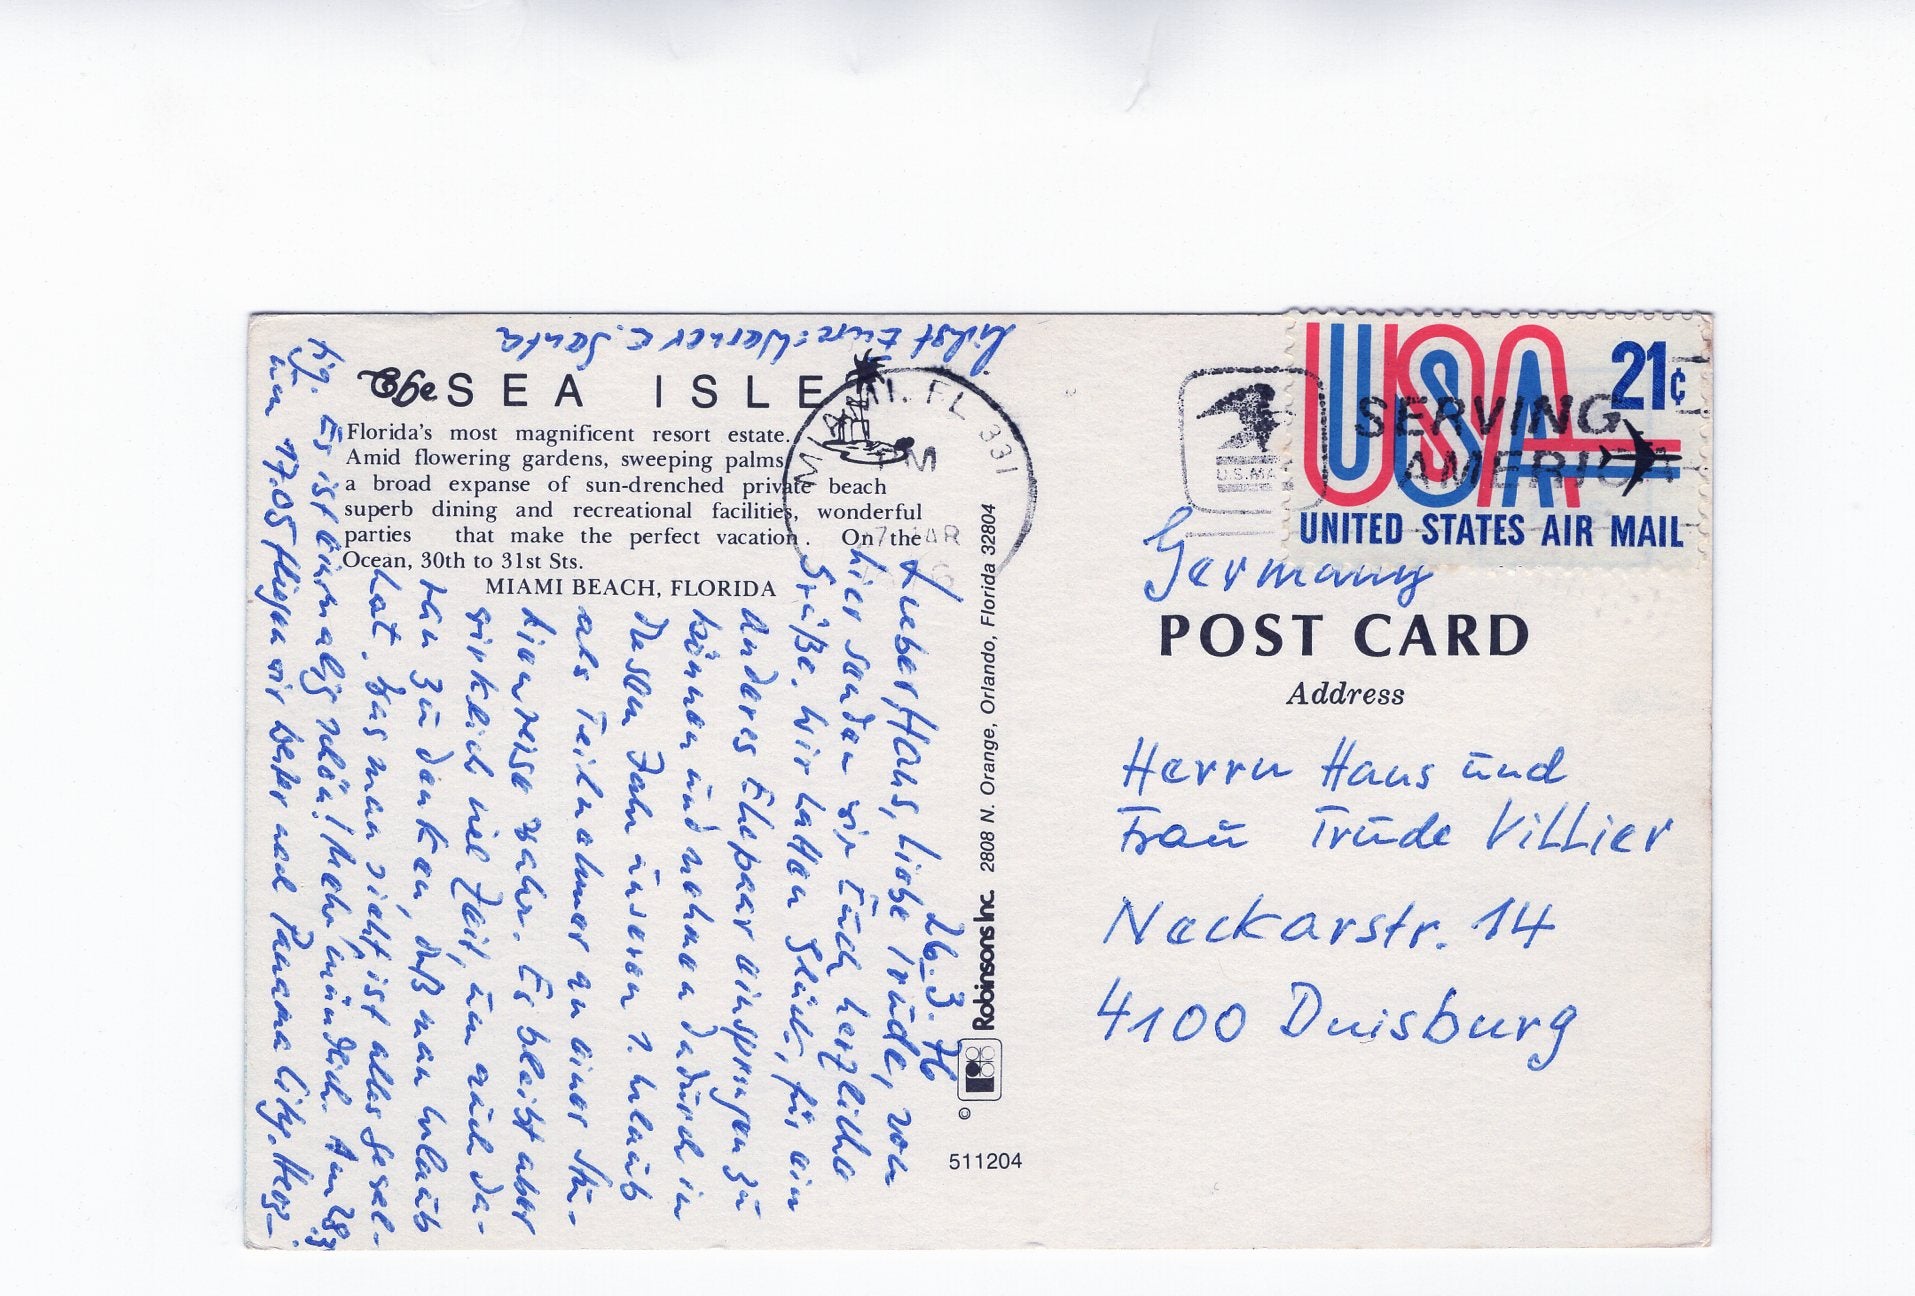 The SEA ISLE
Florida's most magnificent resort estate.
Amid flowering gardens, sweeping palms,
a broad expanse of sun-drenched private beach
superb dining and recreational facilities, wonderful
parties that make the perfect vacation. On the
Ocean, 30th to 31st Sts.
MIAMI BEACH, FLORIDA
26.3.76
Lieber Hans, liebe Trude, von
hier senden wir Euch herzliche
Grüße. Wir hatten Glück, für ein
anderes Ehepaar einspringen zu
können und nehmen dadurch in
diesem Jahr unseren 1. Urlaub
als Teilnehmer an einer Stu-
dienreise wahr. Es bleibt aber
wirklich viel Zeit, um auch da-
ran zu denken, daß man Urlaub
hat. Was man sieht ist alles
Es ist einmalig schön! Mehr mündlich. Am 28.3
um 17.05 fliegen wir weiter nach Panama City. Herz-
lichst Eure Werner u. Senta
Robinsons Inc. 2808 N. Orange, Orlando, Florida 32804
©
511204
MIAMI, FL 331
PM
MAR
U.S.MAIL
SERVING
AMERICA
USA 21c
UNITED STATES AIR MAIL
Germany
POST CARD
Address
Herrn Hans und
Frau Trude Villier
Neckarstr. 14
4100 Duisburg